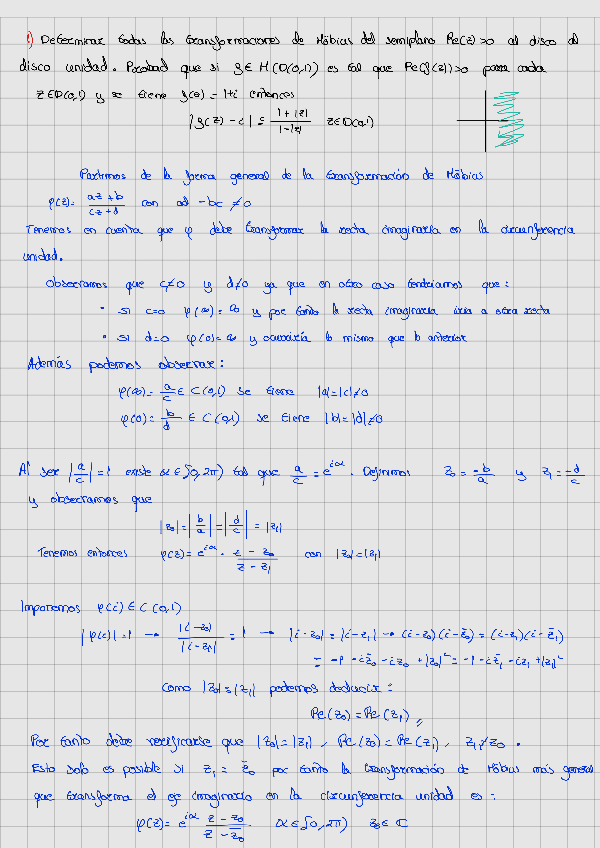 1) Determinar todas las transformaciones de Möbius del semiplano Re(z)>0 al disco al
disco unidad. Probad que si f∈H(D(0,1)) es tal que Re(f(z))>0 para cada
z∈D(0,1) y se tiene f(0)=1+i entonces
|f(z)-i| ≤ (1+|z|)/(1-|z|) z∈D(0,1)
Partimos de la forma general de la transformación de Möbius
φ(z)= (az+b)/(cz+d) con ad-bc≠0
Tenemos en cuenta que φ debe transformar la recta imaginaria en la circunferencia
unidad.
Observamos que c≠0 y d≠0 ya que en otro caso tendríamos que:
• si c=0 φ(∞)=∞ y por tanto la recta imaginaria iría a otra recta
• si d=0 φ(0)=∞ y ocurriría lo mismo que lo anterior
Además podemos observar:
φ(∞)= a/c ∈ C(0,1) se tiene |a|=|c|≠0
φ(0)= b/d ∈ C(0,1) se tiene |b|=|d|≠0
Al ser |a/c|=1 existe α∈[0,2π) tal que a/c = e^{iα}. Definimos z₀=-b/a y z₁=-d/c
y observamos que
|z₀|=|b/a|=|d/c|=|z₁|
Tenemos entonces φ(z)=e^{iα}· (z-z₀)/(z-z₁) con |z₀|=|z₁|
Imponemos φ(i)∈C(0,1)
|φ(i)|=1 → |i-z₀|/|i-z₁| = 1 → |i-z₀|=|i-z₁| → (i-z₀)(i-z̄₀) = (i-z₁)(i-z̄₁)
= -1-iz̄₀-iz₀+|z₀|² = -1-iz̄₁-iz₁+|z₁|²
Como |z₀|=|z₁| podemos deducir:
Re(z₀)=Re(z₁)
Por tanto debe verificarse que |z₀|=|z₁|, Re(z₀)=Re(z₁), z₁≠z₀.
Esto solo es posible si z₁=z̄₀ por tanto la transformación de Möbius más general
que transforma el eje imaginario en la circunferencia unidad es:
φ(z)=e^{iα} (z-z₀)/(z-z̄₀) α∈[0,2π) z₀∈ℂ